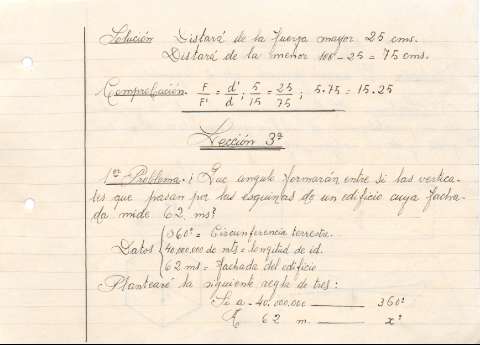 Solución Distará de la fuerza mayor 25 cms.
Distará de la menor 100 - 25 = 75 cms.
Comprobación. F/F' = d'/d ; 5/15 = 25/75 ; 5·75 = 15·25
Lección 3ª
1er Problema. ¿Que angulo formarán entre si las vertica-
les que pasan por las esquinas de un edificio cuya facha-
da mide 62 ms?
Datos { 360º = Circunferencia terrestre.
40,000,000 de mts = longitud de id.
62 ms = Fachada del edificio
Plantearé la siguiente regla de tres:
Si a - 40.000.000 —— 360º
62 m. —— xº